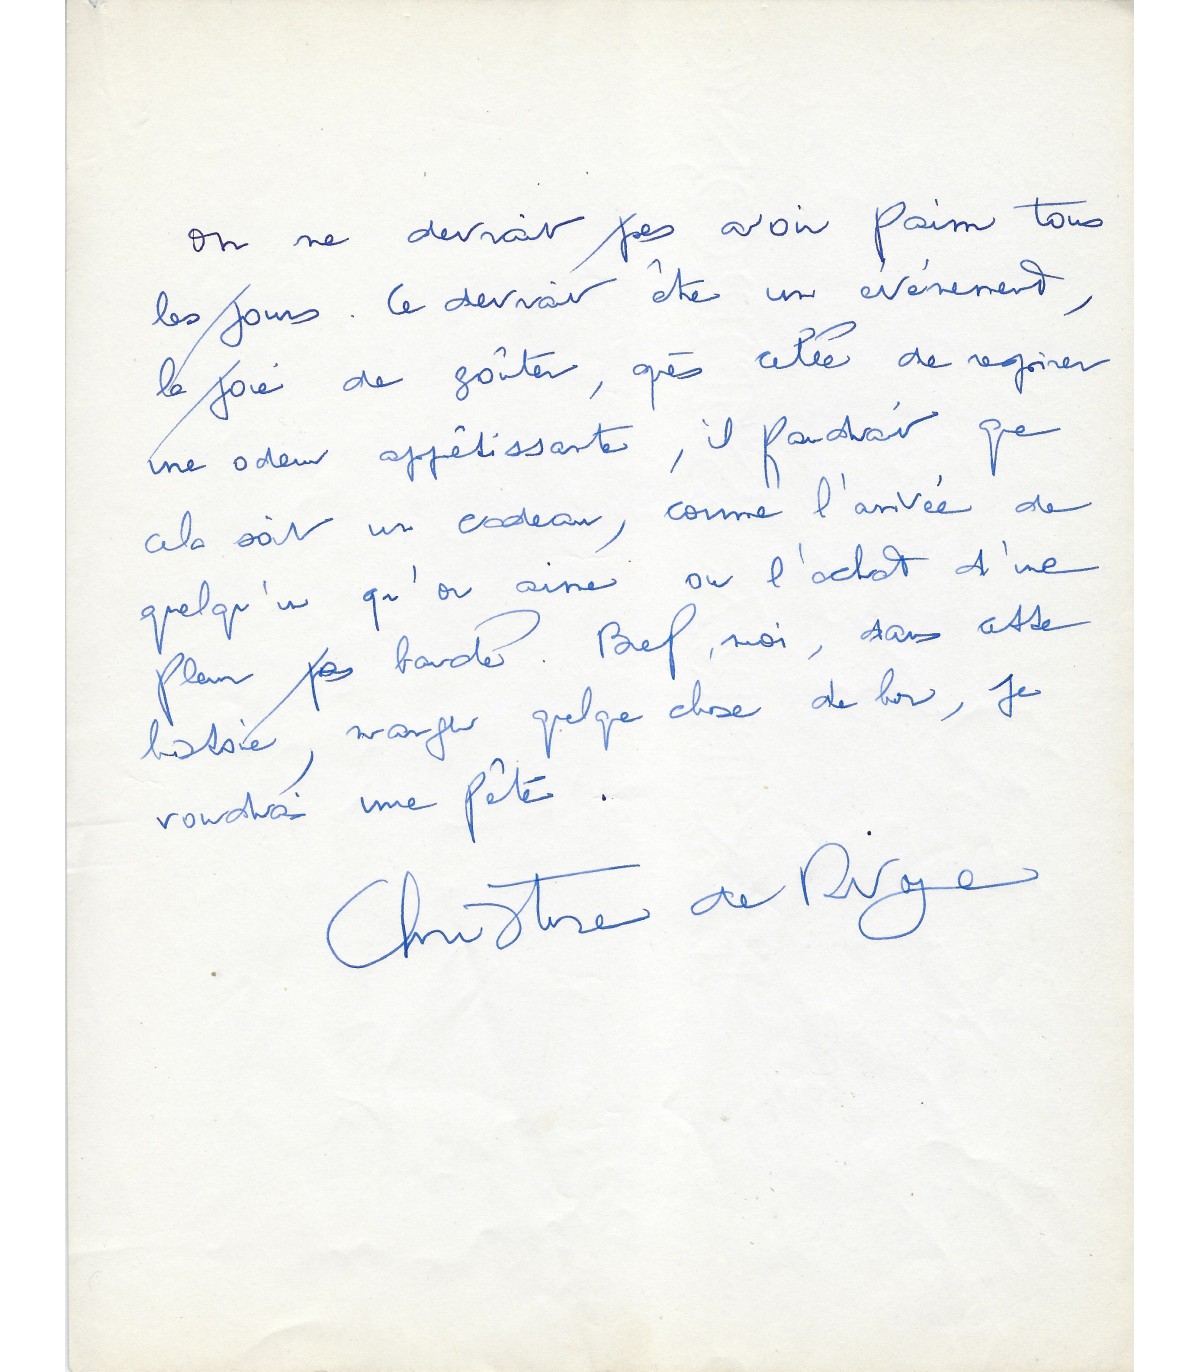 On ne devrait pas avoir faim tous
les jours. Ce devrait être un événement,
la joie de goûter, après celle de respirer
une odeur appétissante, il faudrait que
cela soit un cadeau, comme l'arrivée de
quelqu'un qu'on aime ou l'achat d'une
fleur pas Bref, moi, dans cette
histoire, manger quelque chose de bon, je
voudrais une fête.
Christine de Rivoyre